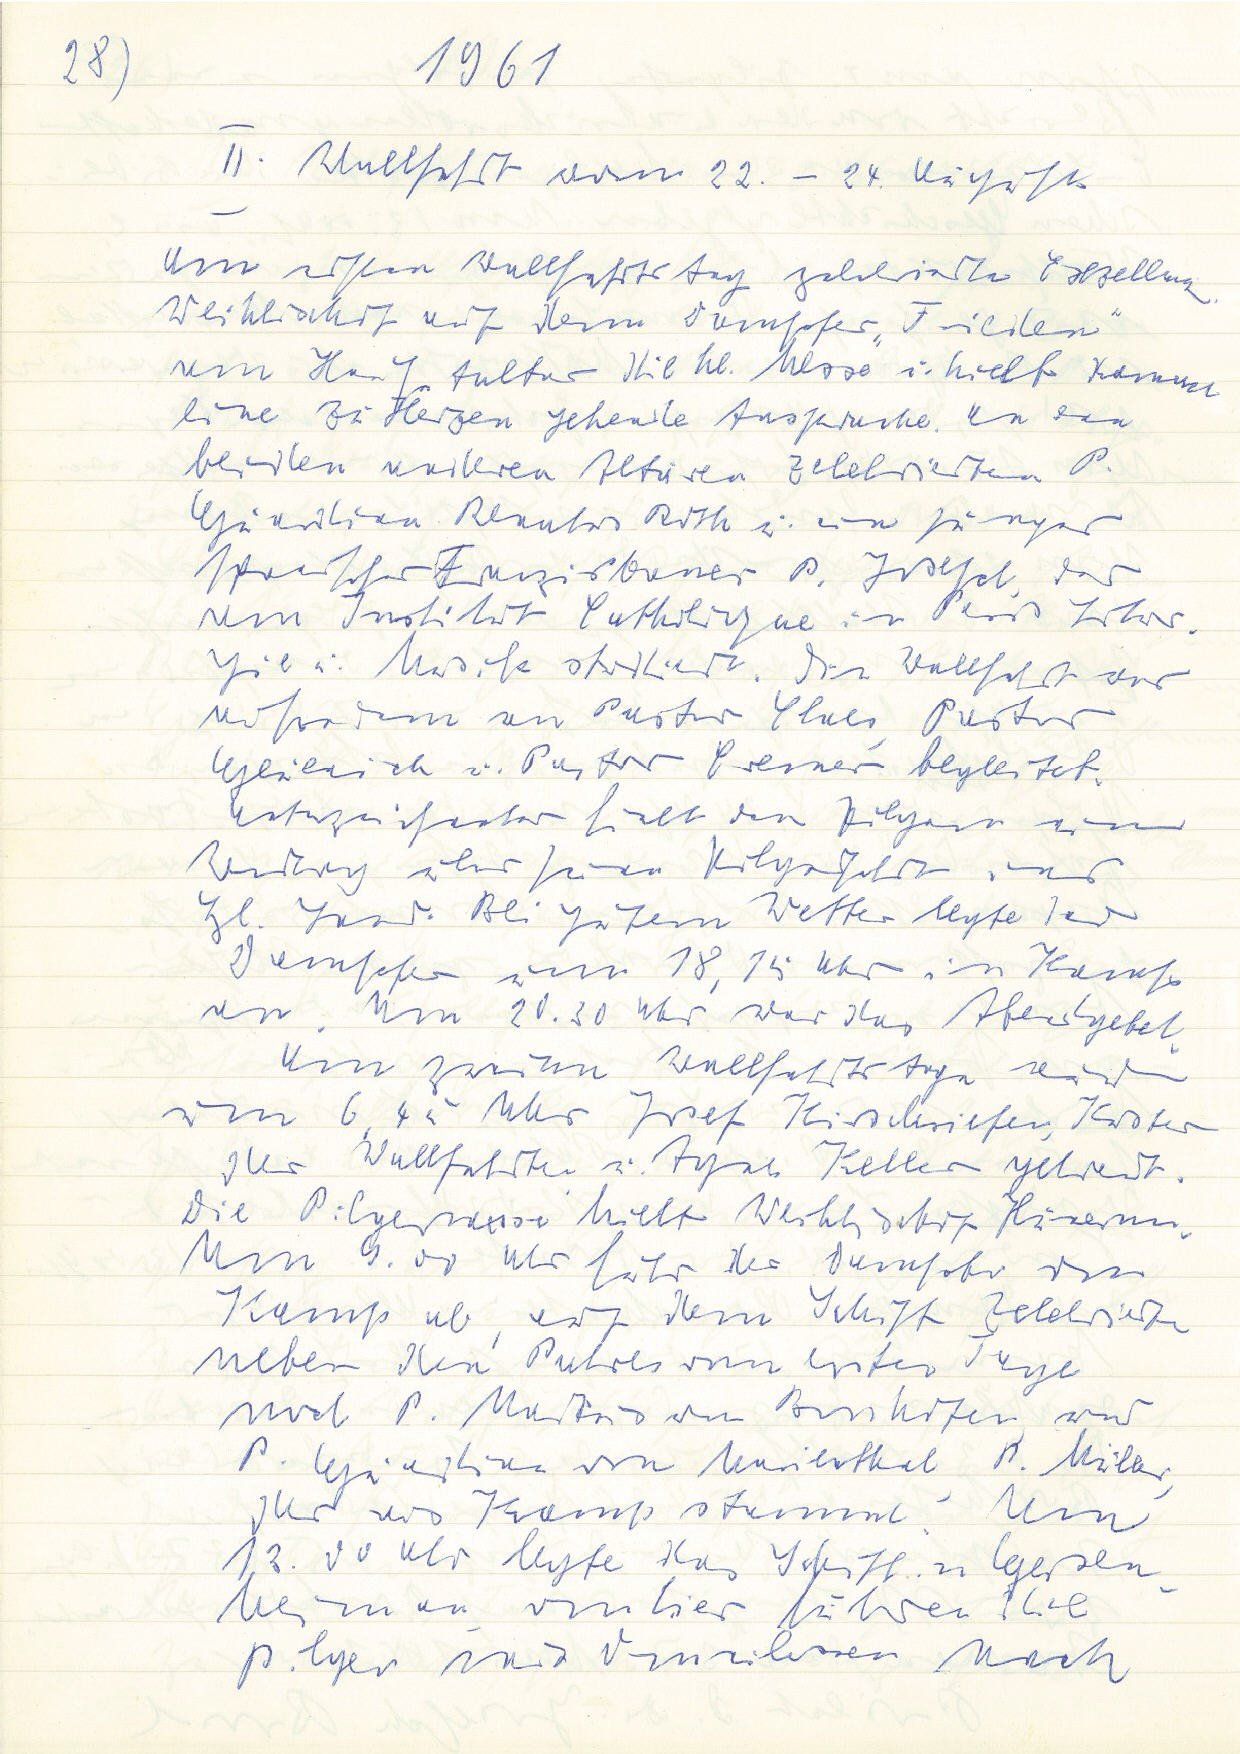 28) 1961
II. Wallfahrt vom 22. – 24. August
Am ersten Wallfahrtstag zelebrierte Exzellenz
Weihbischof auf dem Dampfer „Frieden“
am Hochaltar die hl. Messe u. hielt
eine zu Herzen gehende Ansprache. An den
beiden anderen Altären zelebrierten P.
Guardian Renatus Roth u. ein junger
spanischer Franziskaner P. Josef, der
am Institut Catholique in Paris Litur-
gie u. Musik studiert. Die Wallfahrt war
außerdem von Pastor Claes, Pastor
u. Pastor Cremer begleitet.
Unterzeichneter hielt den Pilgern einen
Vortrag über seine Pilgerfahrt ins
Hl. Land. Bei gutem Wetter legte der
Dampfer um 18,15 Uhr in Kamp
an. Um 20.30 Uhr war das Abendgebet.
Am zweiten Wallfahrtstage wurde
um 6,45 Uhr Josef Küster
der Wallfahrten u. Agnes Keller getraut.
Die Pilgermesse hielt Weihbischof
Um 9.00 Uhr fuhr der Dampfer von
Kamp ab, auf dem Schiff zelebrierte
neben den Patres vom ersten Tage
noch P. Markus von Bornhofen und
P. Guardian von Marienthal, P. Müller,
der aus Kamp stammt. Um
13.00 Uhr legte das Schiff in Geisen-
heim an, von hier fuhren die
Pilger mit Omnibussen nach